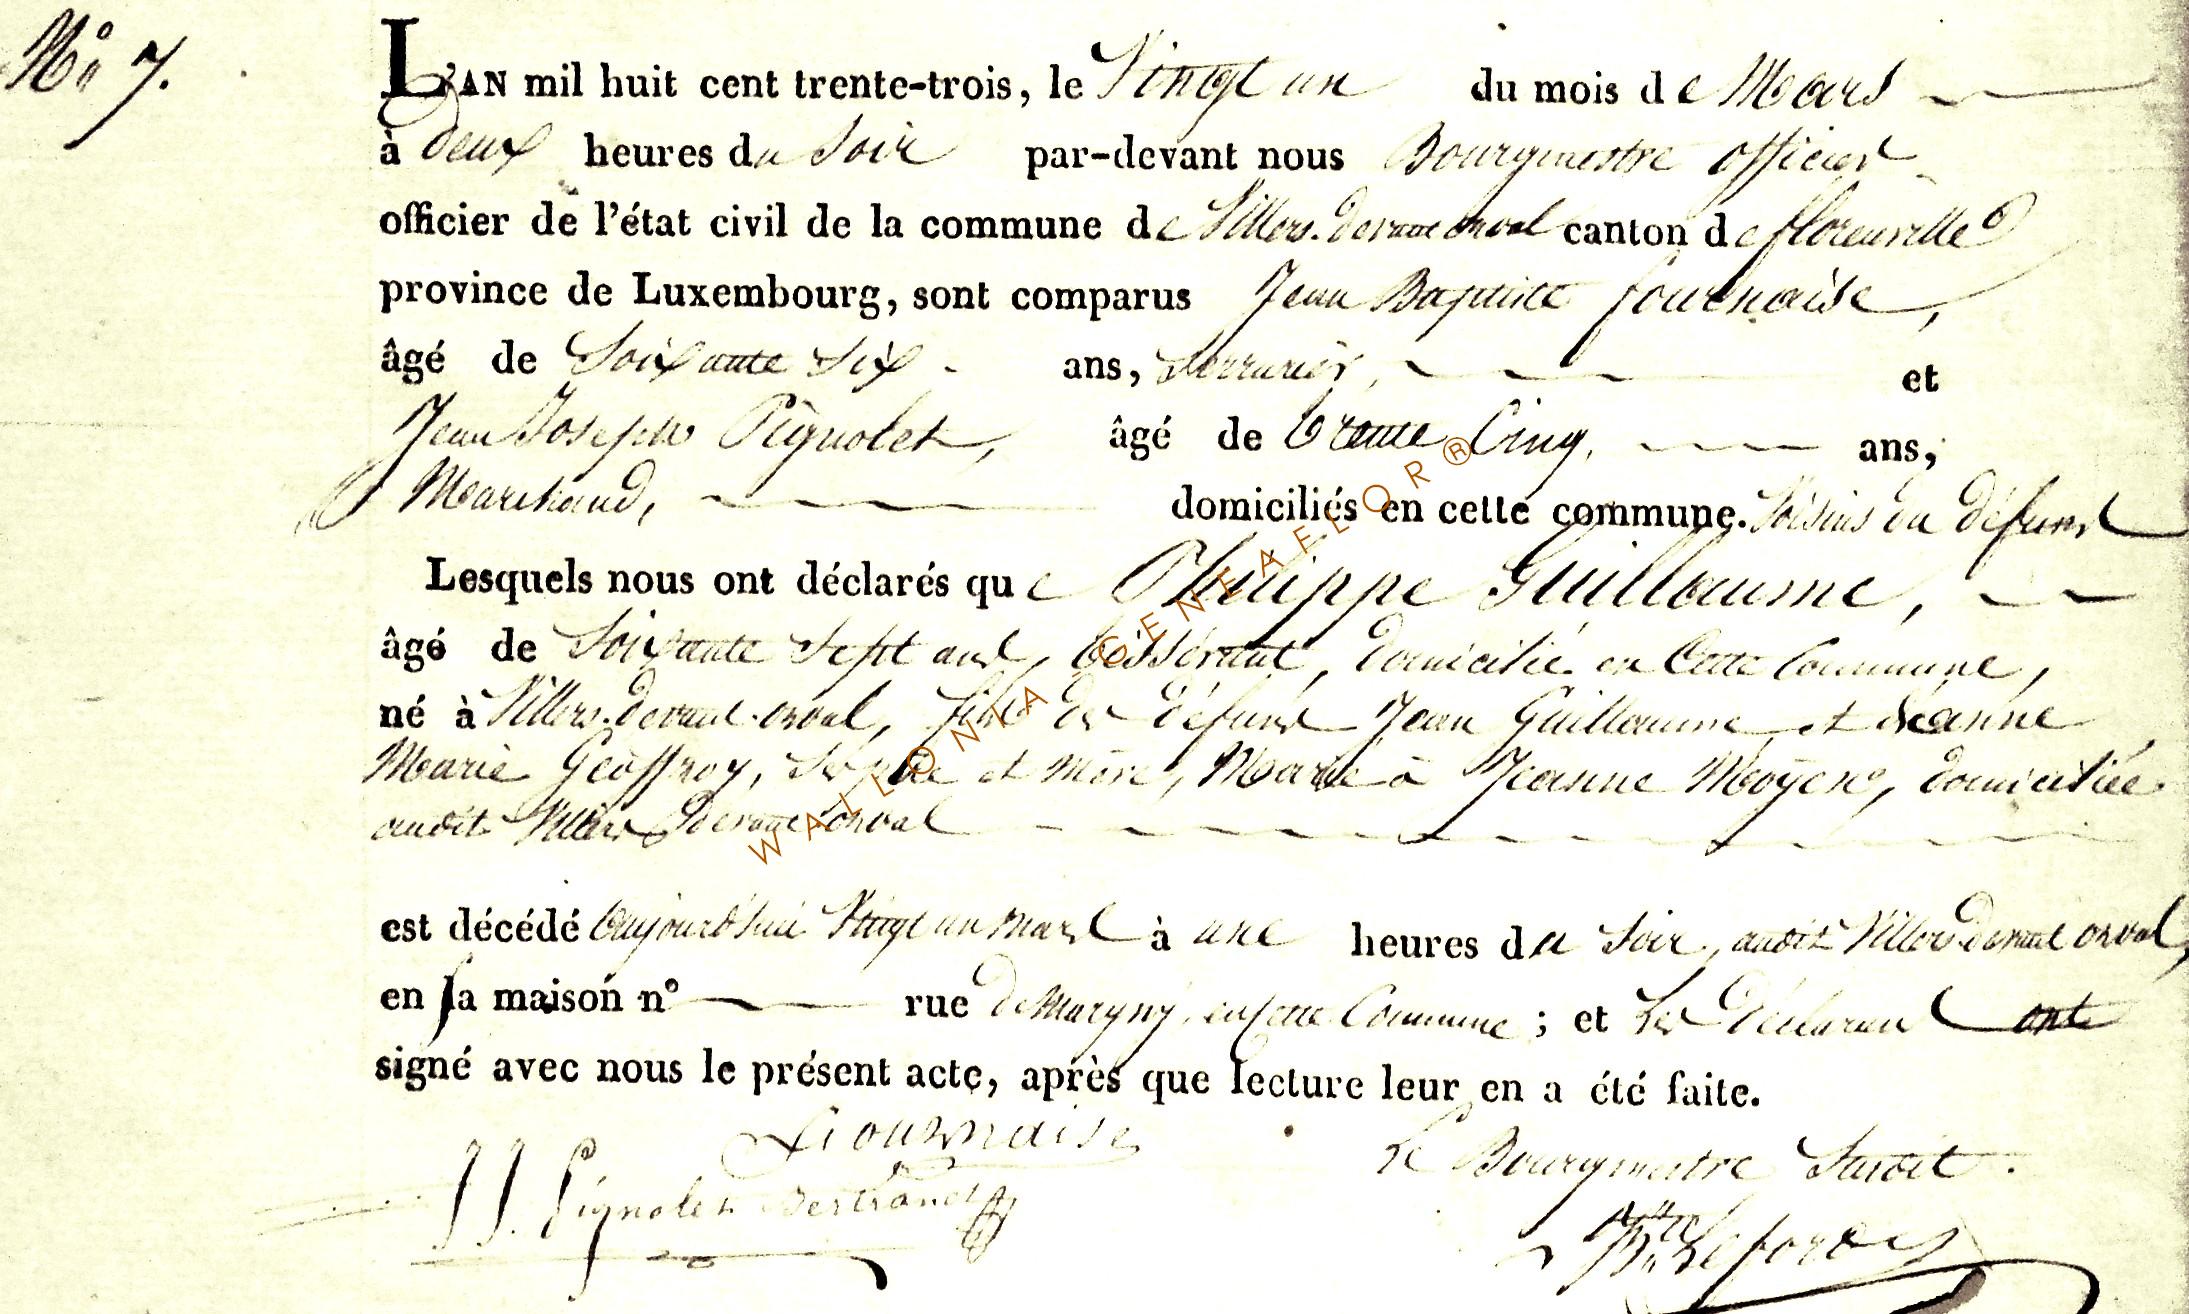 N° 7.
L'AN mil huit cent trente-trois, le Vingt un du mois de Mars
à deux heures du Soir par-devant nous Bourgmestre officier
officier de l'état civil de la commune de Villers-devant-orval canton de florenville
province de Luxembourg, sont comparus Jean Baptiste fournaise,
âgé de Soixante Six ans, Serrurier, et
Jean Joseph Pignolet, âgé de trente Cinq, ans,
Marchand, domiciliés en cette commune. Voisins du défunt
Lesquels nous ont déclarés que Philippe Guillaume,
âgé de Soixante Sept ans, tisserant, domicilié en Cette Commune,
né à Villers-devant-orval, fils de défunt Jean Guillaume et Jeanne
Marie Geoffroy, Ses père et mère, Marié à Jeanne Moÿen, domiciliée
audit Villers devant orval
est décédé aujourd'hui Vingt un mars à une heures du Soir, audit Villers devant orval,
en sa maison n° rue de Margny, en cette Commune ; et Les déclarans ont
signé avec nous le présent acte, après que lecture leur en a été faite.
fournaise
Le Bourgmestre Susdit.
JJ. Pignolet Bertrand
WALLONIA-GENEAFLOR®